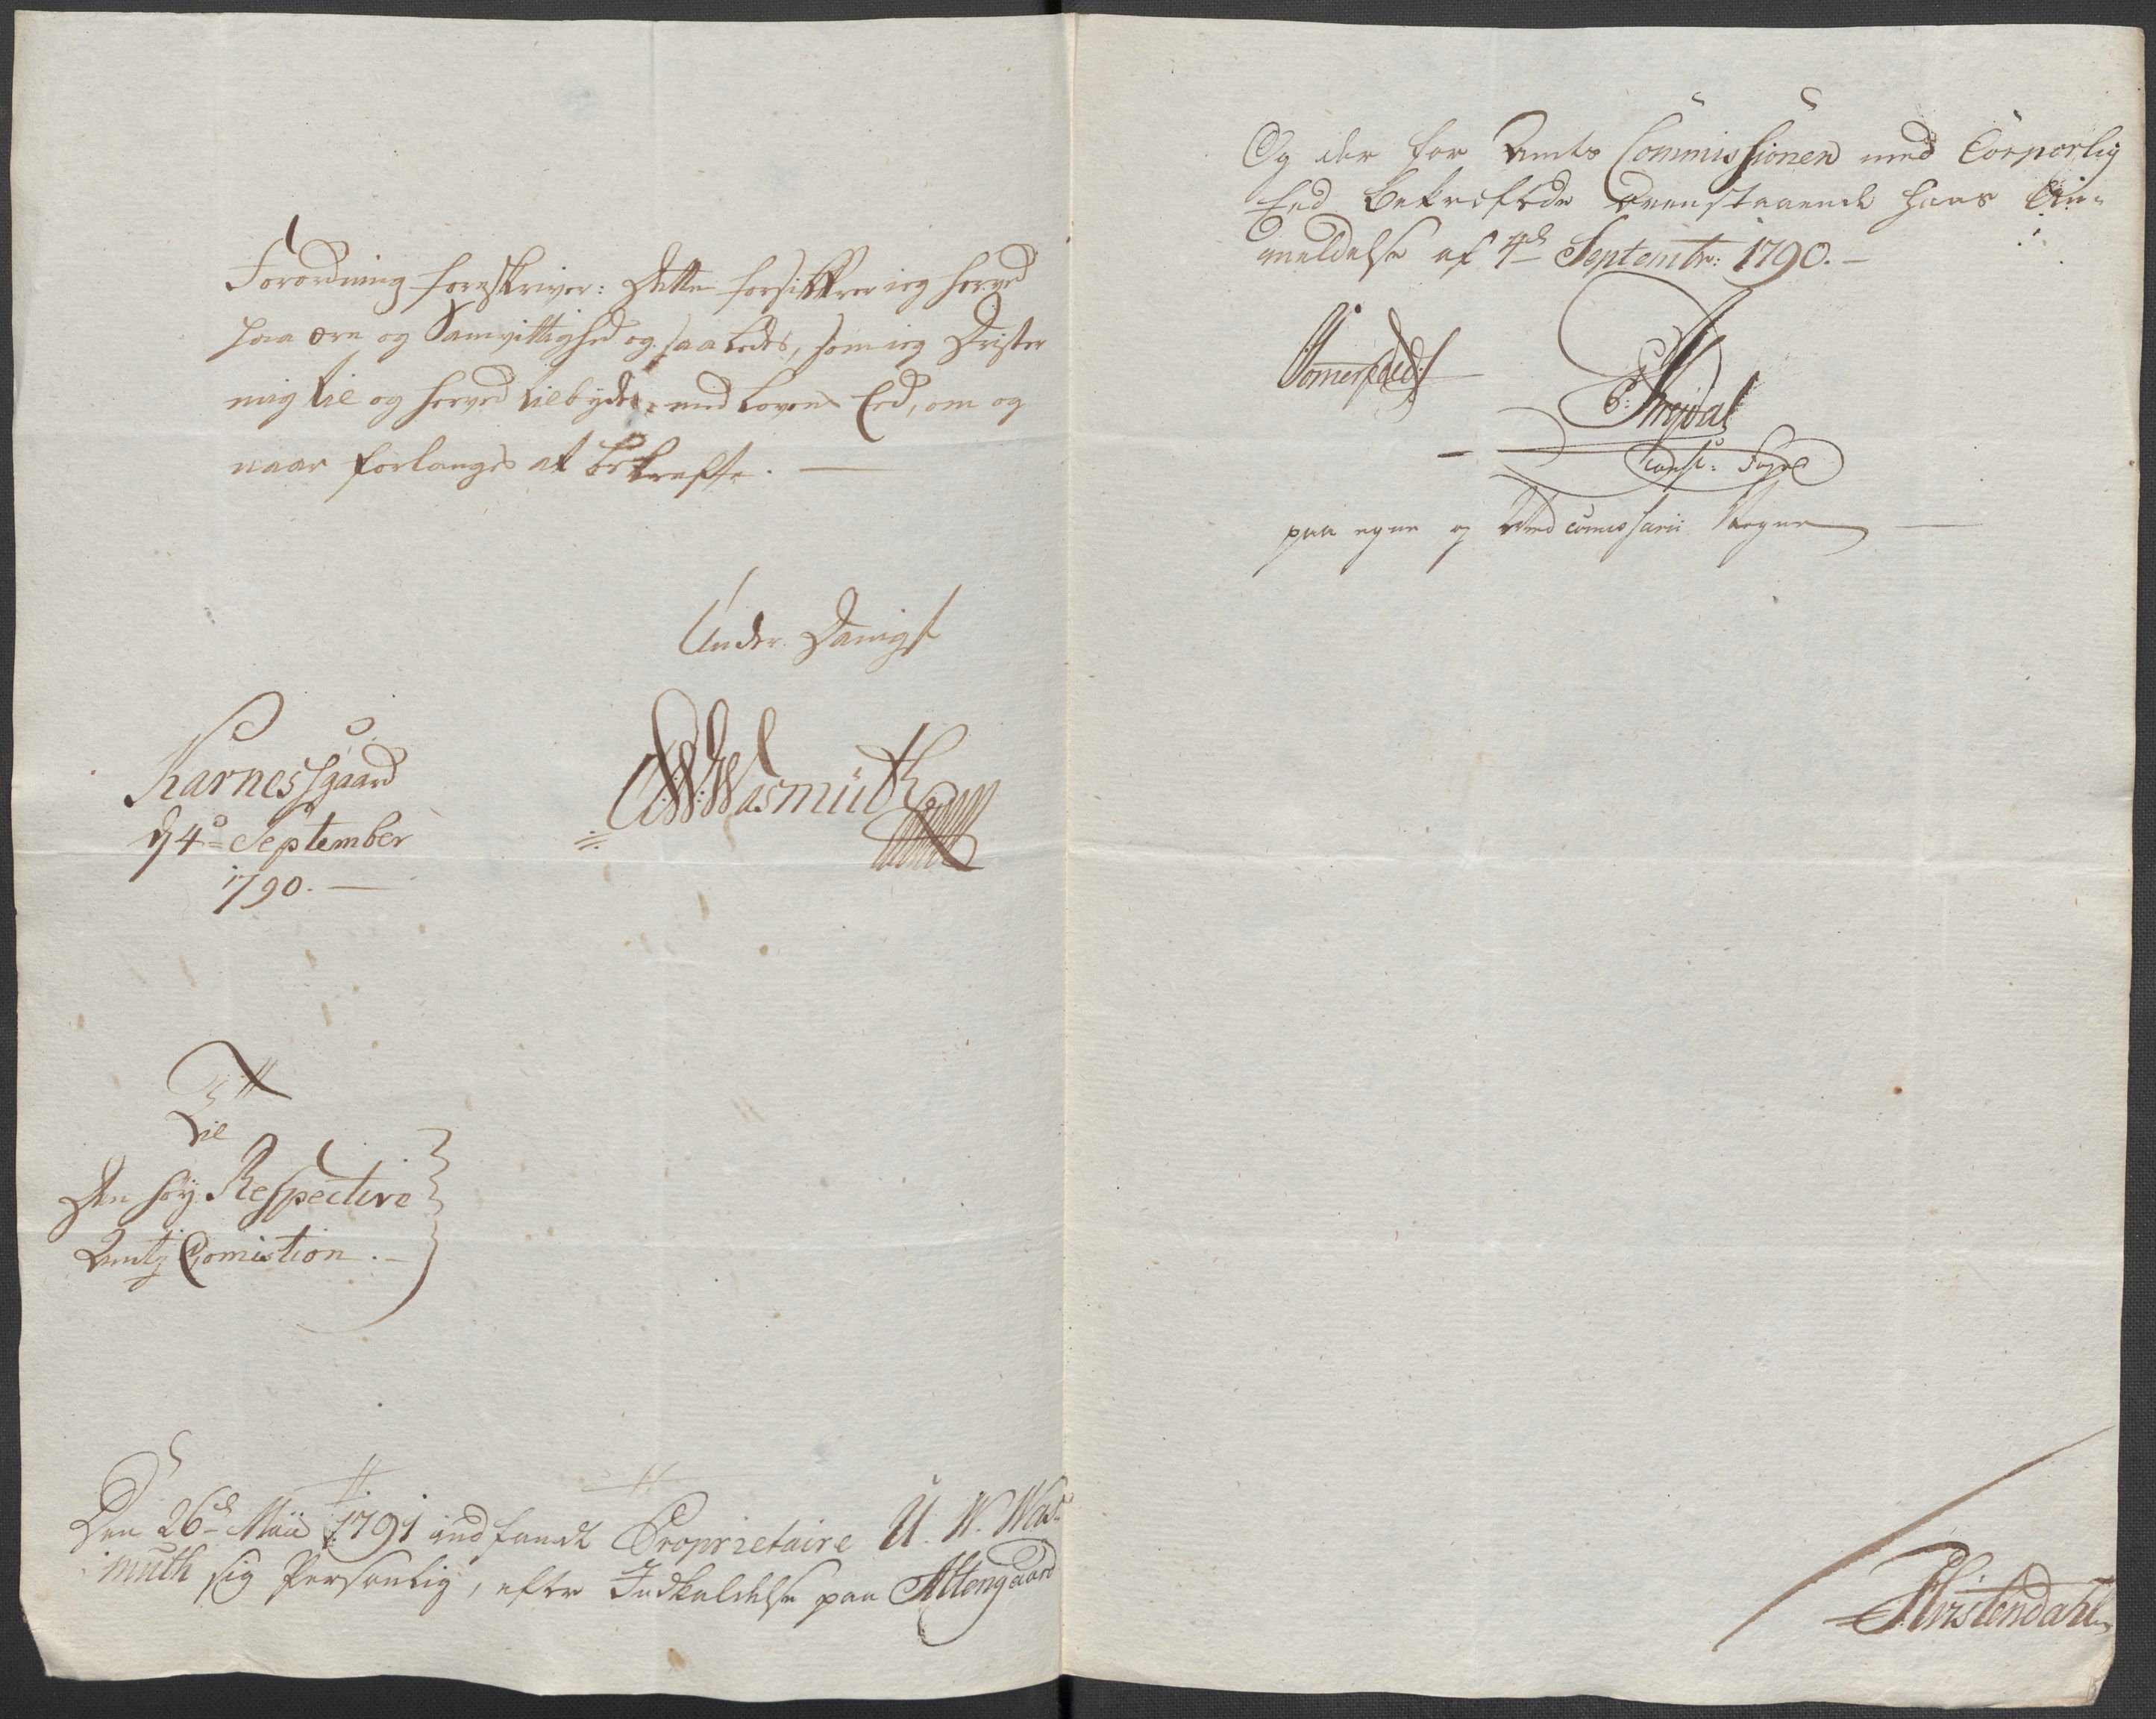 Forordning foreskriver: Dette forsikkrer ieg herved
paa ære og Samvittighed og saaledes, som ieg Drister
mig til og herved tilbyder, med Lovens Eed, om og
naar forlanges at bekræfte. —
Under Danigst
Karnes Sgaard
d 4de September
1790. —
U: W: Wasmuth
Til
Den høy Respective
Amtz Comistion. —
Den 26de Maii 1791 indfandt Proprietaire U. W. Was-
muth sig Personlig, efter Indkaldelse paa Altengaard
Og der for Amts Commissionen med Corporlig
Eed bekræftede ovenstaaende hans An-
meldelse af 4de Septembr: 1790. —
Sommerfeldt
const: Foged
paa egne og Med comissarii Vegne —
Hvistendahl